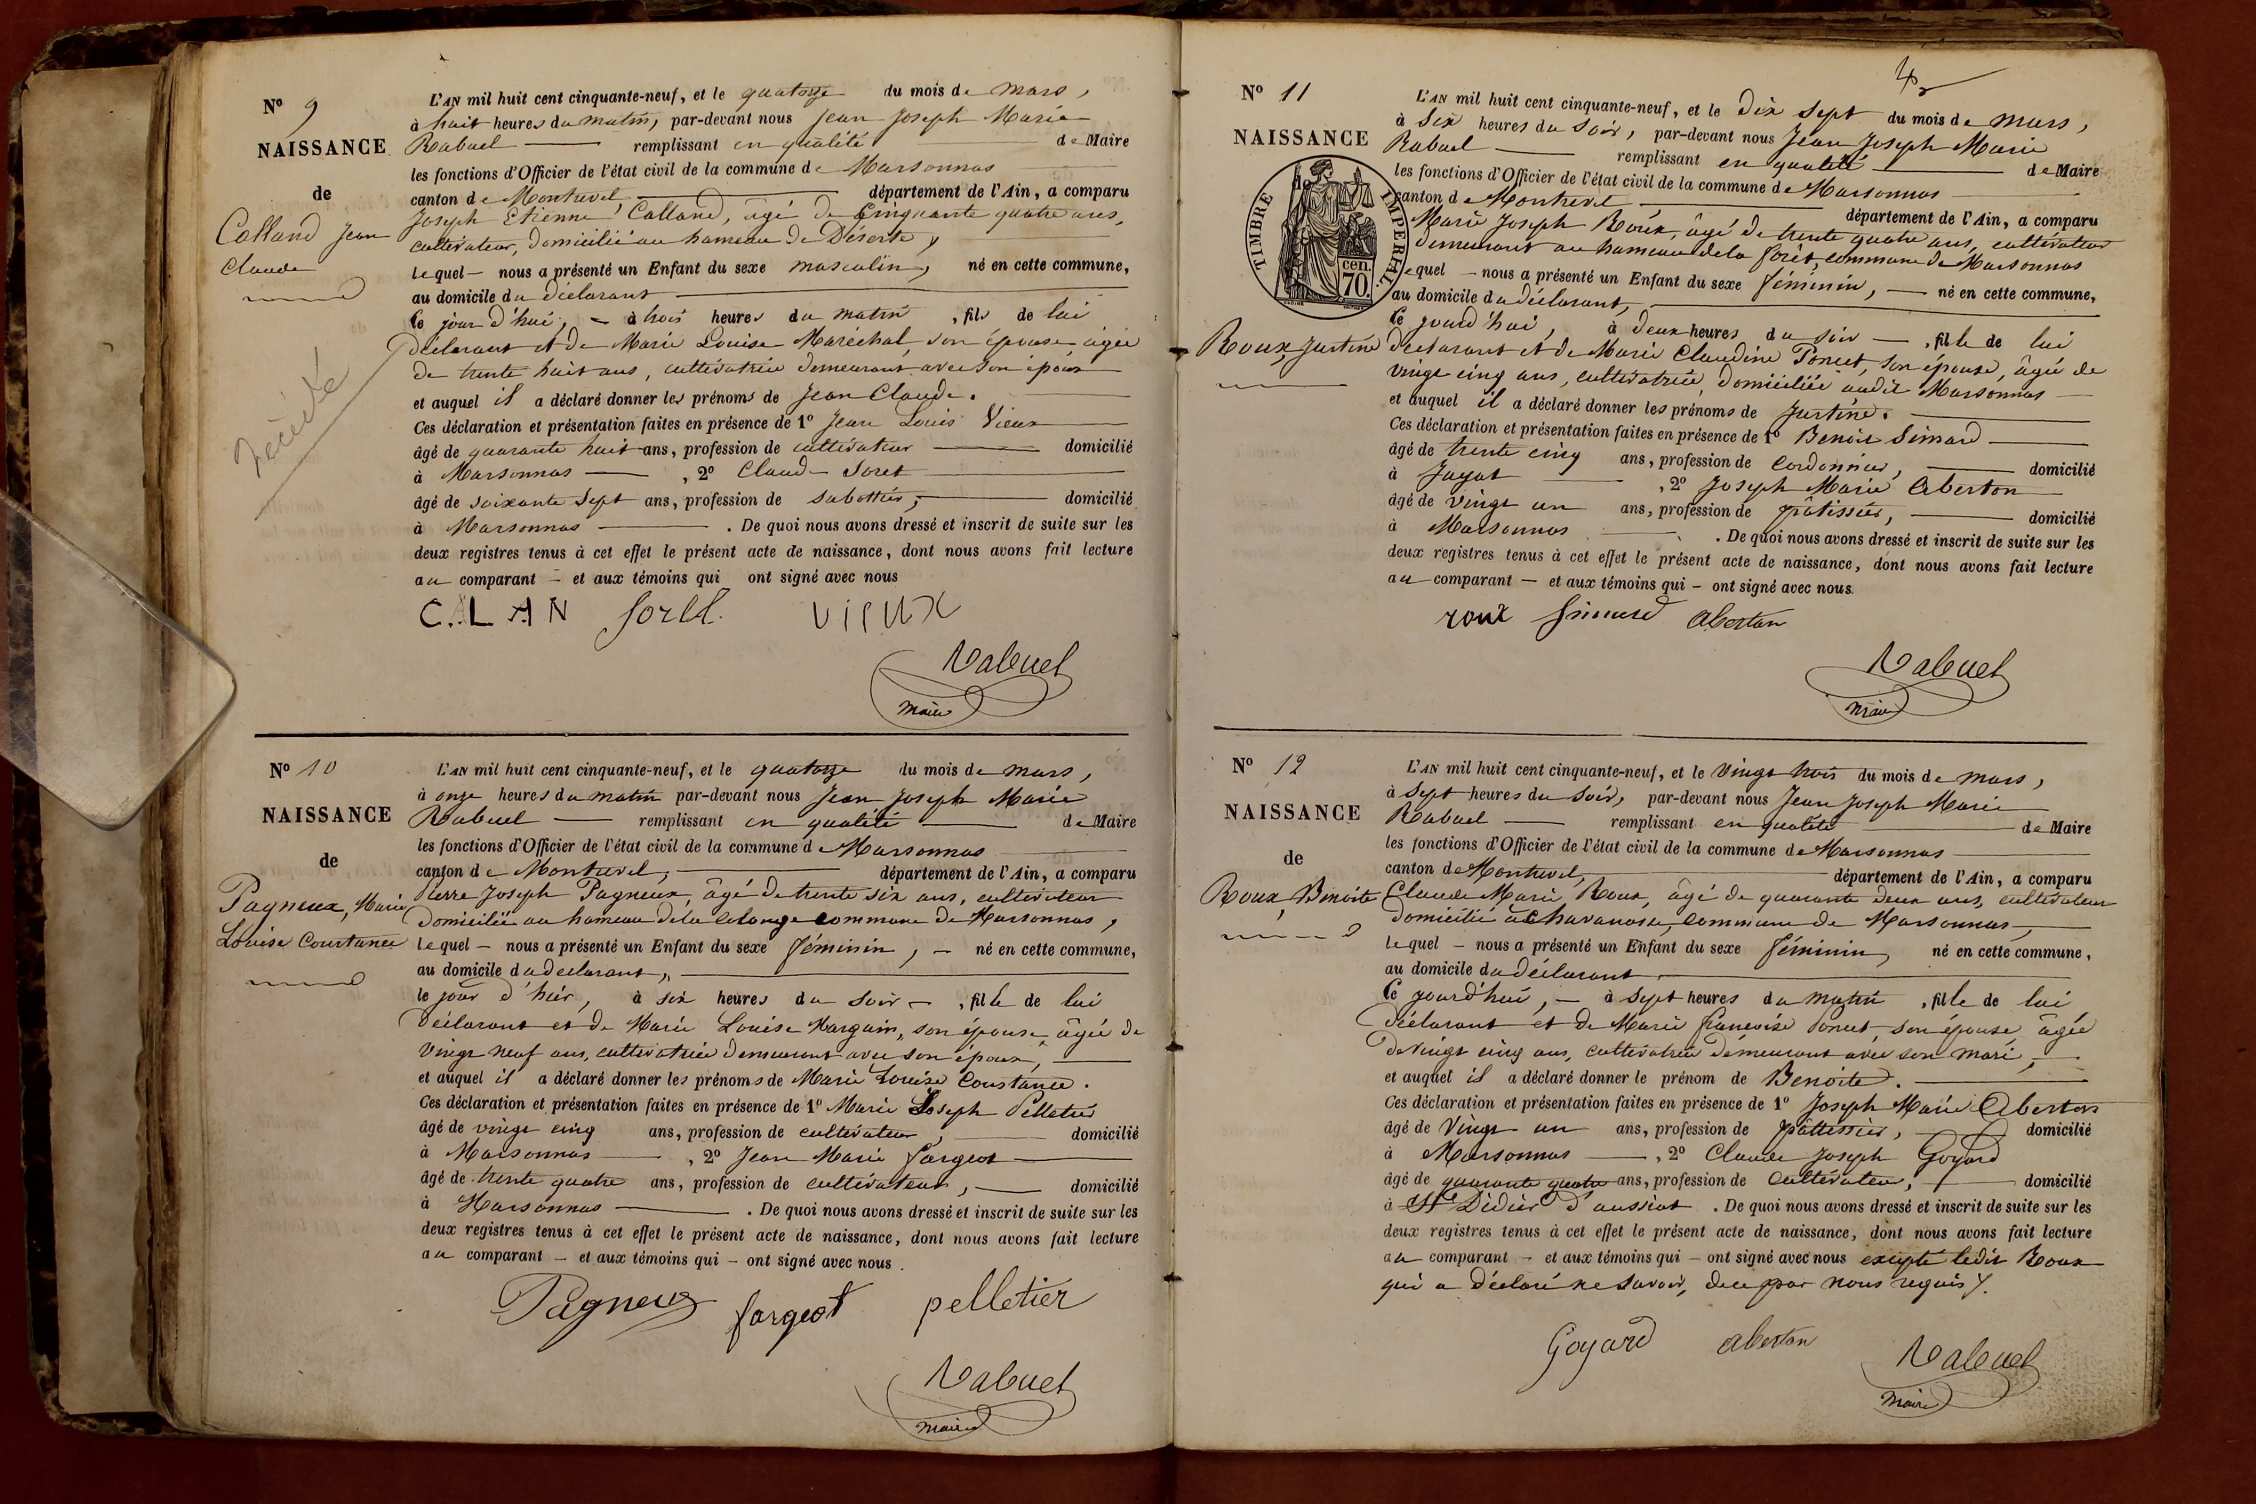 Nº 9
NAISSANCE
de
Calland Jean
Claude
décédé
L'AN mil huit cent cinquante-neuf, et le quatorze du mois de mars,
à huit heures du matin, par-devant nous Jean Joseph Marie
Rabuel remplissant en qualité de Maire
les fonctions d'Officier de l'état civil de la commune de Marsonnas
canton de Montrevel département de l'Ain, a comparu
Joseph Etienne Calland, âgé de Cinquante quatre ans,
cultivateur, domicilié au hameau de Déserte,
lequel — nous a présenté un Enfant du sexe masculin, né en cette commune,
au domicile du déclarant
Ce jour d'hui, — à trois heures du matin, fils de lui
déclarant et de Marie Louise Maréchal, son épouse âgée
de trente huit ans, cultivatrice demeurant avec son époux
et auquel il a déclaré donner les prénoms de Jean Claude.
Ces déclaration et présentation faites en présence de 1º Jean Louis Vieux
âgé de quarante huit ans, profession de cultivateur domicilié
à Marsonnas , 2º Claude Soret
âgé de soixante sept ans, profession de sabottier, domicilié
à Marsonnas . De quoi nous avons dressé et inscrit de suite sur les
deux registres tenus à cet effet le présent acte de naissance, dont nous avons fait lecture
au comparant — et aux témoins qui ont signé avec nous
C.LAN Soret. vieux
Rabuel
maire
Nº 10
NAISSANCE
de
Pagneux, Marie
Louise Constance
L'AN mil huit cent cinquante-neuf, et le quatorze du mois de mars,
à onze heures du matin par-devant nous Jean Joseph Marie
Rabuel remplissant en qualité de Maire
les fonctions d'Officier de l'état civil de la commune de Marsonnas
canton de Montrevel, département de l'Ain, a comparu
Pierre Joseph Pagneux, âgé de trente six ans, cultivateur
domicilié au hameau de la Colonge commune de Marsonnas,
lequel — nous a présenté un Enfant du sexe féminin, — né en cette commune,
au domicile du déclarant,
le jour d'hier, à six heures du soir —, fille de lui
Déclarant et de Marie Louise Margain, son épouse âgée de
vingt neuf ans, cultivatrice demeurant avec son époux,
et auquel il a déclaré donner les prénoms de Marie Louise Constance.
Ces déclaration et présentation faites en présence de 1º Marie Joseph Pelletier
âgé de vingt cinq ans, profession de cultivateur, domicilié
à Marsonnas , 2º Jean Marie Fargeot
âgé de trente quatre ans, profession de cultivateur, domicilié
à Marsonnas . De quoi nous avons dressé et inscrit de suite sur les
deux registres tenus à cet effet le présent acte de naissance, dont nous avons fait lecture
au comparant — et aux témoins qui — ont signé avec nous.
Pagneux fargeot pelletier
Rabuel
maire
Nº 11
NAISSANCE
de
TIMBRE IMPÉRIAL
cen.
70.
Roux, Justine
L'AN mil huit cent cinquante-neuf, et le Dix sept du mois de mars,
à Six heures du soir, par-devant nous Jean Joseph Marie
Rabuel remplissant en qualité de Maire
les fonctions d'Officier de l'état civil de la commune de Marsonnas
canton de Montrevel département de l'Ain, a comparu
Marie Joseph Roux, âgé de trente quatre ans, cultivateur
demeurant au hameau de la forêt, commune de Marsonnas
lequel — nous a présenté un Enfant du sexe féminin, — né en cette commune,
au domicile du déclarant,
Ce jourd'hui, à deux heures du soir —, fille de lui
déclarant et de Marie Claudine Poncet, son épouse, âgée de
vingt cinq ans, cultivatrice, domiciliée audit Marsonnas
et auquel il a déclaré donner les prénoms de Justine.
Ces déclaration et présentation faites en présence de 1º Benoit Simard
âgé de trente cinq ans, profession de Cordonnier, domicilié
à Jayat , 2º Joseph Marie Aberton
âgé de vingt un ans, profession de pâtissier, domicilié
à Marsonnas . De quoi nous avons dressé et inscrit de suite sur les
deux registres tenus à cet effet le présent acte de naissance, dont nous avons fait lecture
au comparant — et aux témoins qui — ont signé avec nous.
roux Simard aberton
Rabuel
maire
Nº 12
NAISSANCE
de
Roux, Benoite
L'AN mil huit cent cinquante-neuf, et le vingt trois du mois de mars,
à sept heures du soir, par-devant nous Jean Joseph Marie
Rabuel remplissant en qualité de Maire
les fonctions d'Officier de l'état civil de la commune de Marsonnas
canton de Montrevel, département de l'Ain, a comparu
Claude Marie Roux, âgé de quarante deux ans, cultivateur
domicilié à Chavanosse, commune de Marsonnas,
lequel — nous a présenté un Enfant du sexe féminin, né en cette commune,
au domicile du déclarant
Ce jourd'hui, — à sept heures du matin, fille de lui
Déclarant et de Marie françoise Poncet son épouse âgée
de vingt cinq ans, cultivatrice demeurant avec son mari,
et auquel il a déclaré donner le prénom de Benoite.
Ces déclaration et présentation faites en présence de 1º Joseph Marie Aberton
âgé de Vingt un ans, profession de pâttissier, domicilié
à Marsonnas , 2º Claude Joseph Goyard
âgé de quarante quatre ans, profession de Cultivateur, domicilié
à St Didier d'aussiat . De quoi nous avons dressé et inscrit de suite sur les
deux registres tenus à cet effet le présent acte de naissance, dont nous avons fait lecture
au comparant — et aux témoins qui — ont signé avec nous excepté ledit Roux
qui a déclaré ne savoir, de ce par nous requis.
Goyard aberton
Rabuel
maire